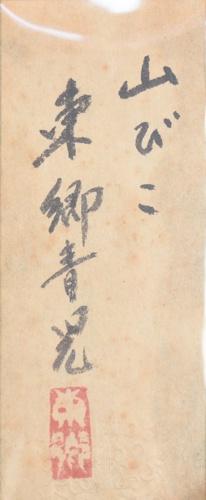 山びこ
東郷青児